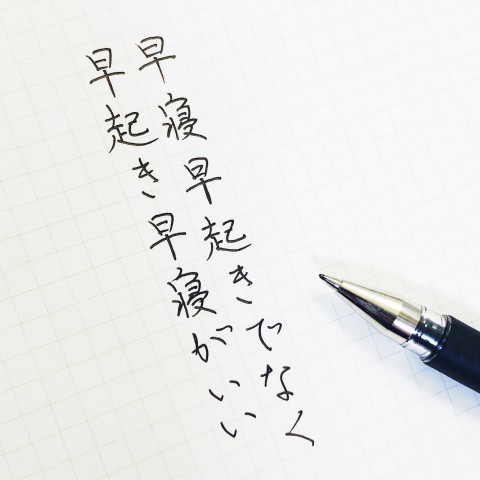 早寝早起きでなく
早起き早寝がいい